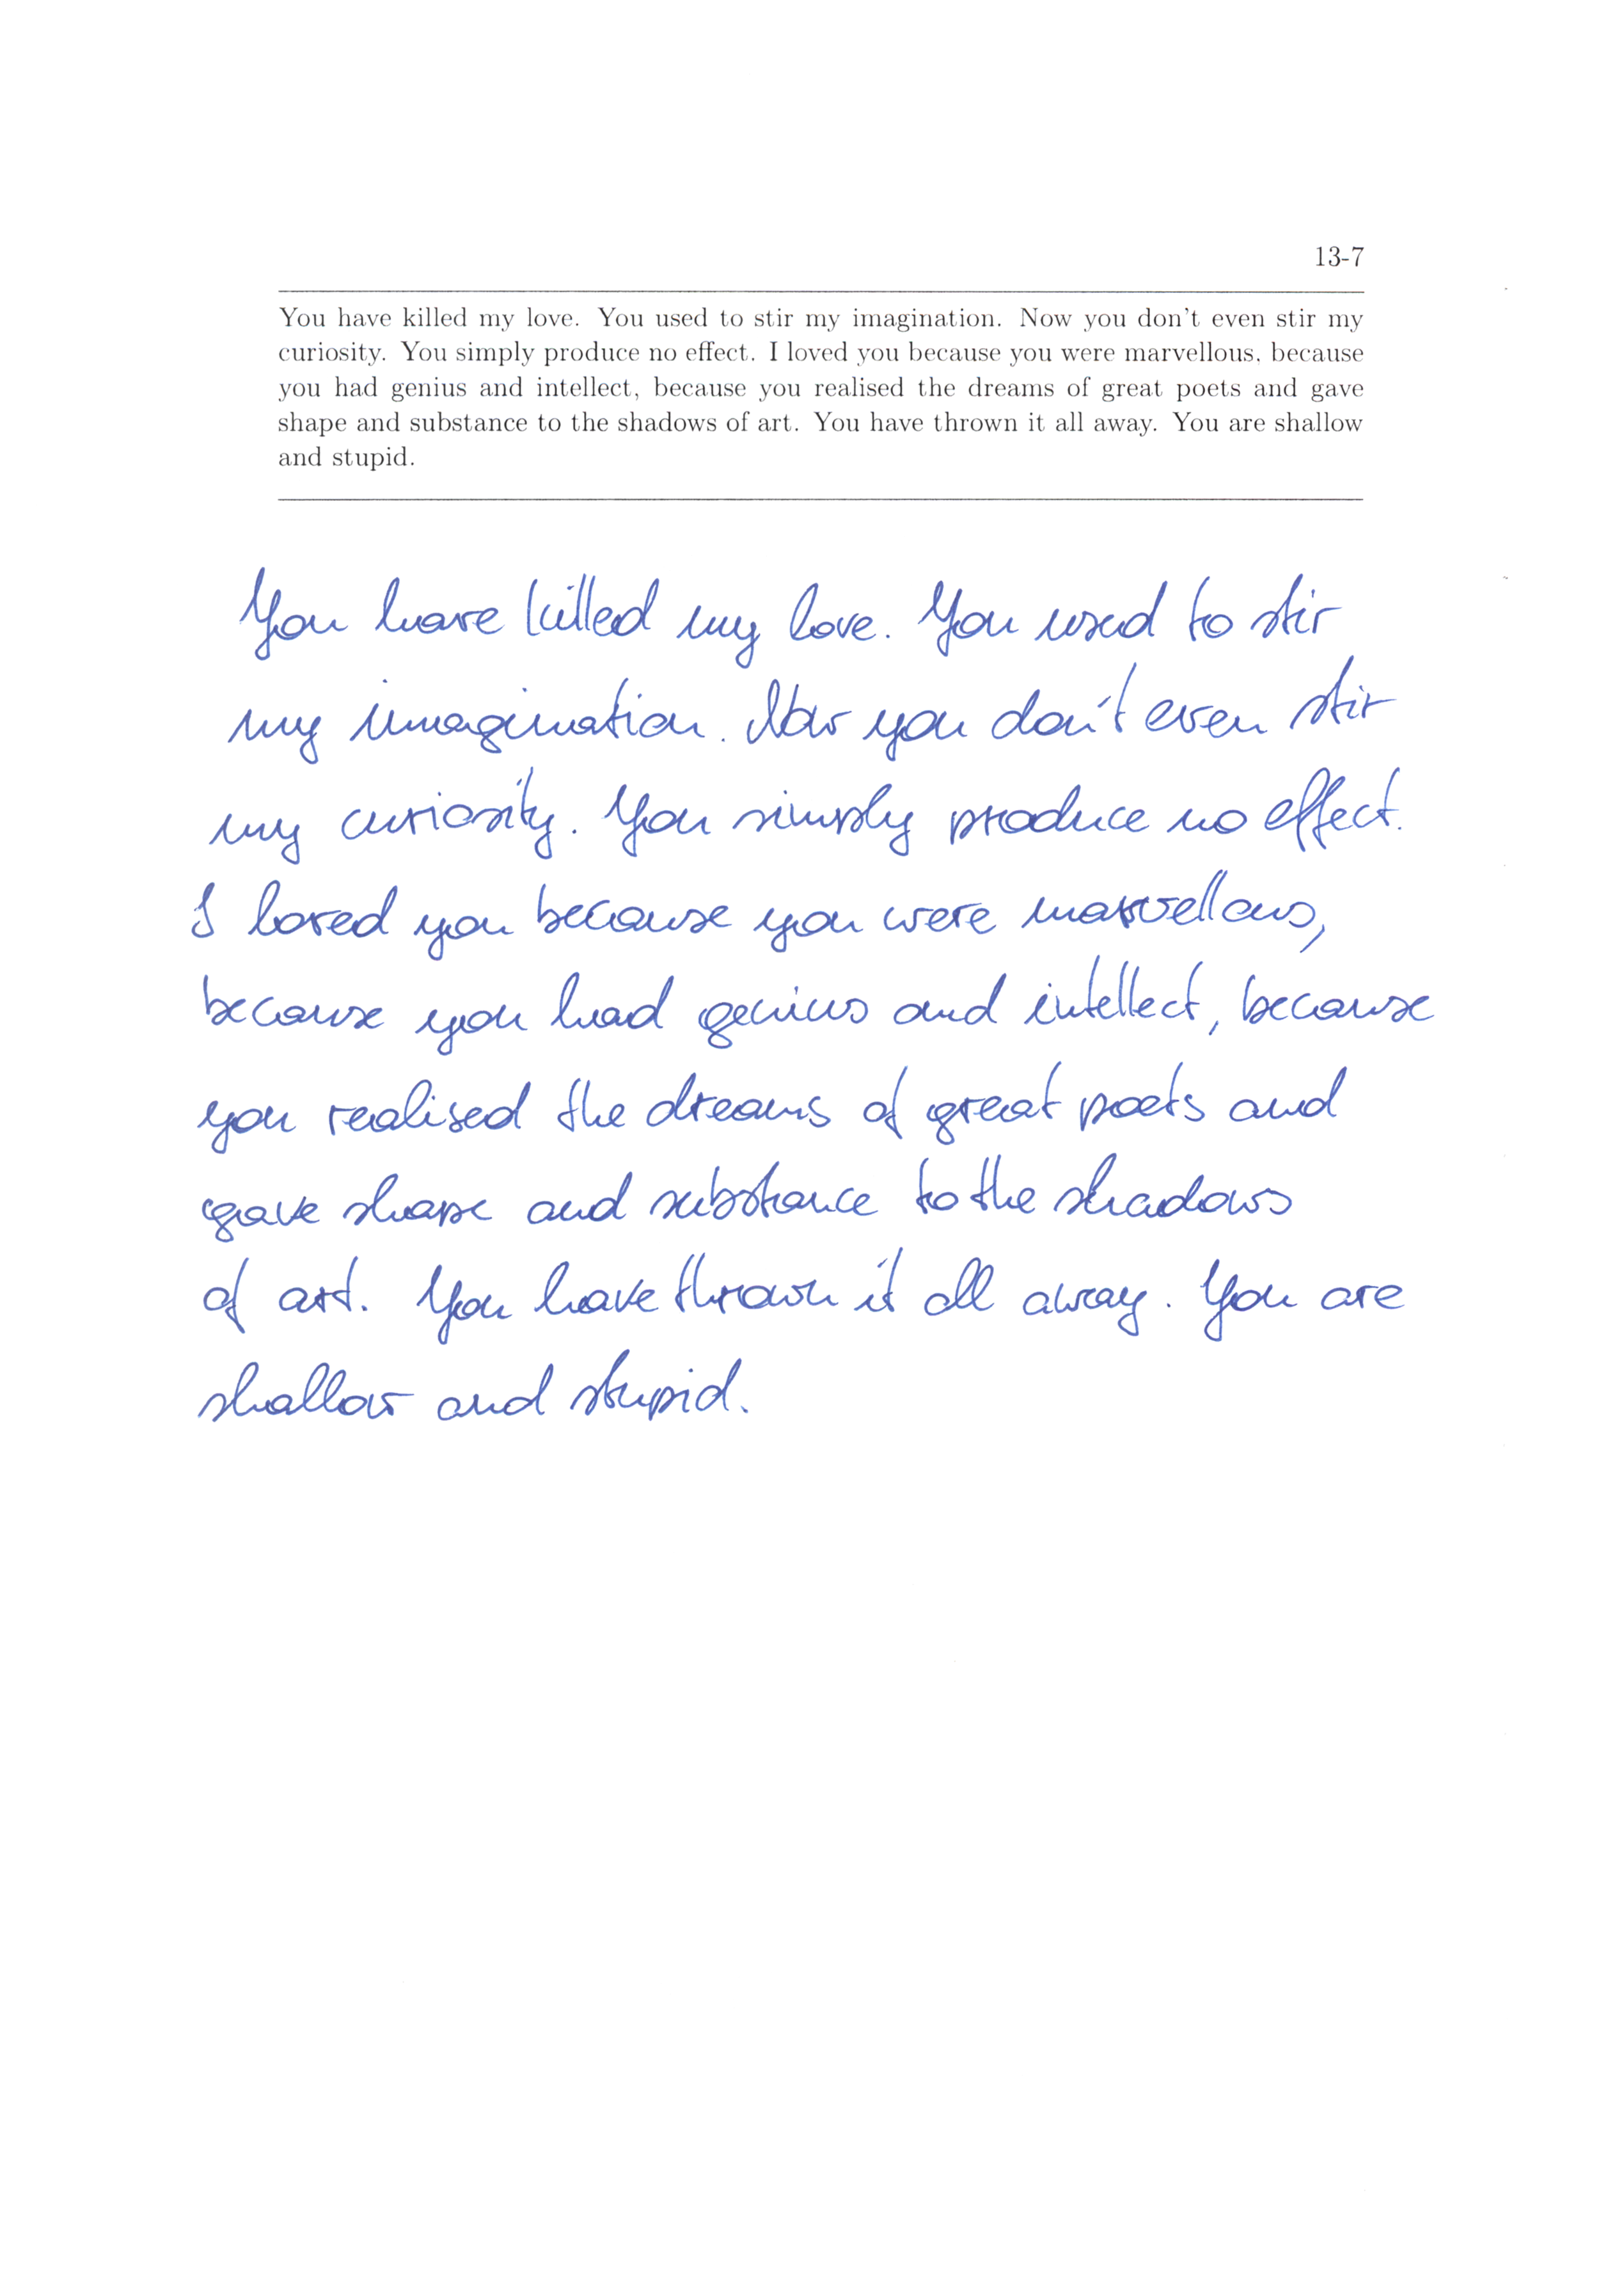 13-7
You have killed my love. You used to stir my imagination. Now you don't even stir my
curiosity. You simply produce no effect. I loved you because you were marvellous, because
you had genius and intellect, because you realised the dreams of great poets and gave
shape and substance to the shadows of art. You have thrown it all away. You are shallow
and stupid.
You have killed my love. You used to stir
my imagination. Now you don't even stir
my curiosity. You simply produce no effect.
I loved you because you were marvellous,
because you had genius and intellect, because
you realised the dreams of great poets and
gave shape and substance to the shadows
of art. You have thrown it all away. You are
shallow and stupid.